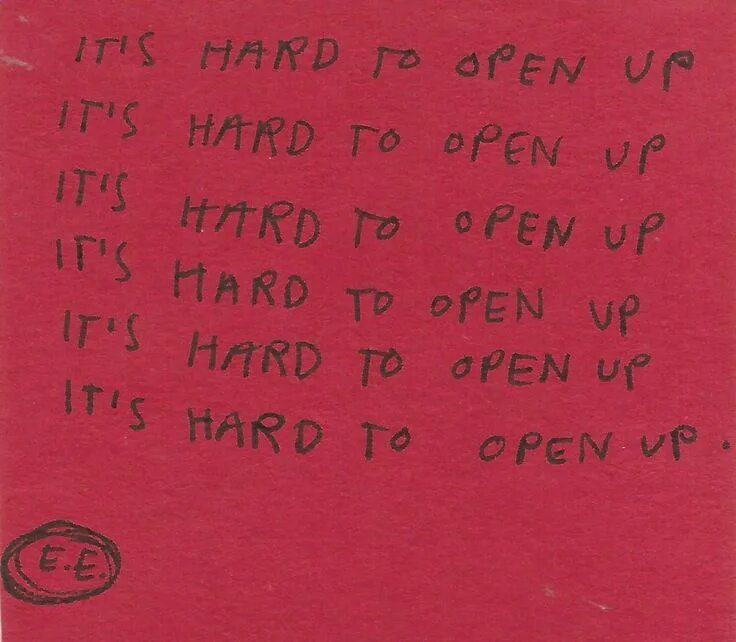 IT'S HARD TO OPEN UP
IT'S HARD TO OPEN UP
IT'S HARD TO OPEN UP
IT'S HARD TO OPEN UP
IT'S HARD TO OPEN UP
IT'S HARD TO OPEN UP.
E.E.